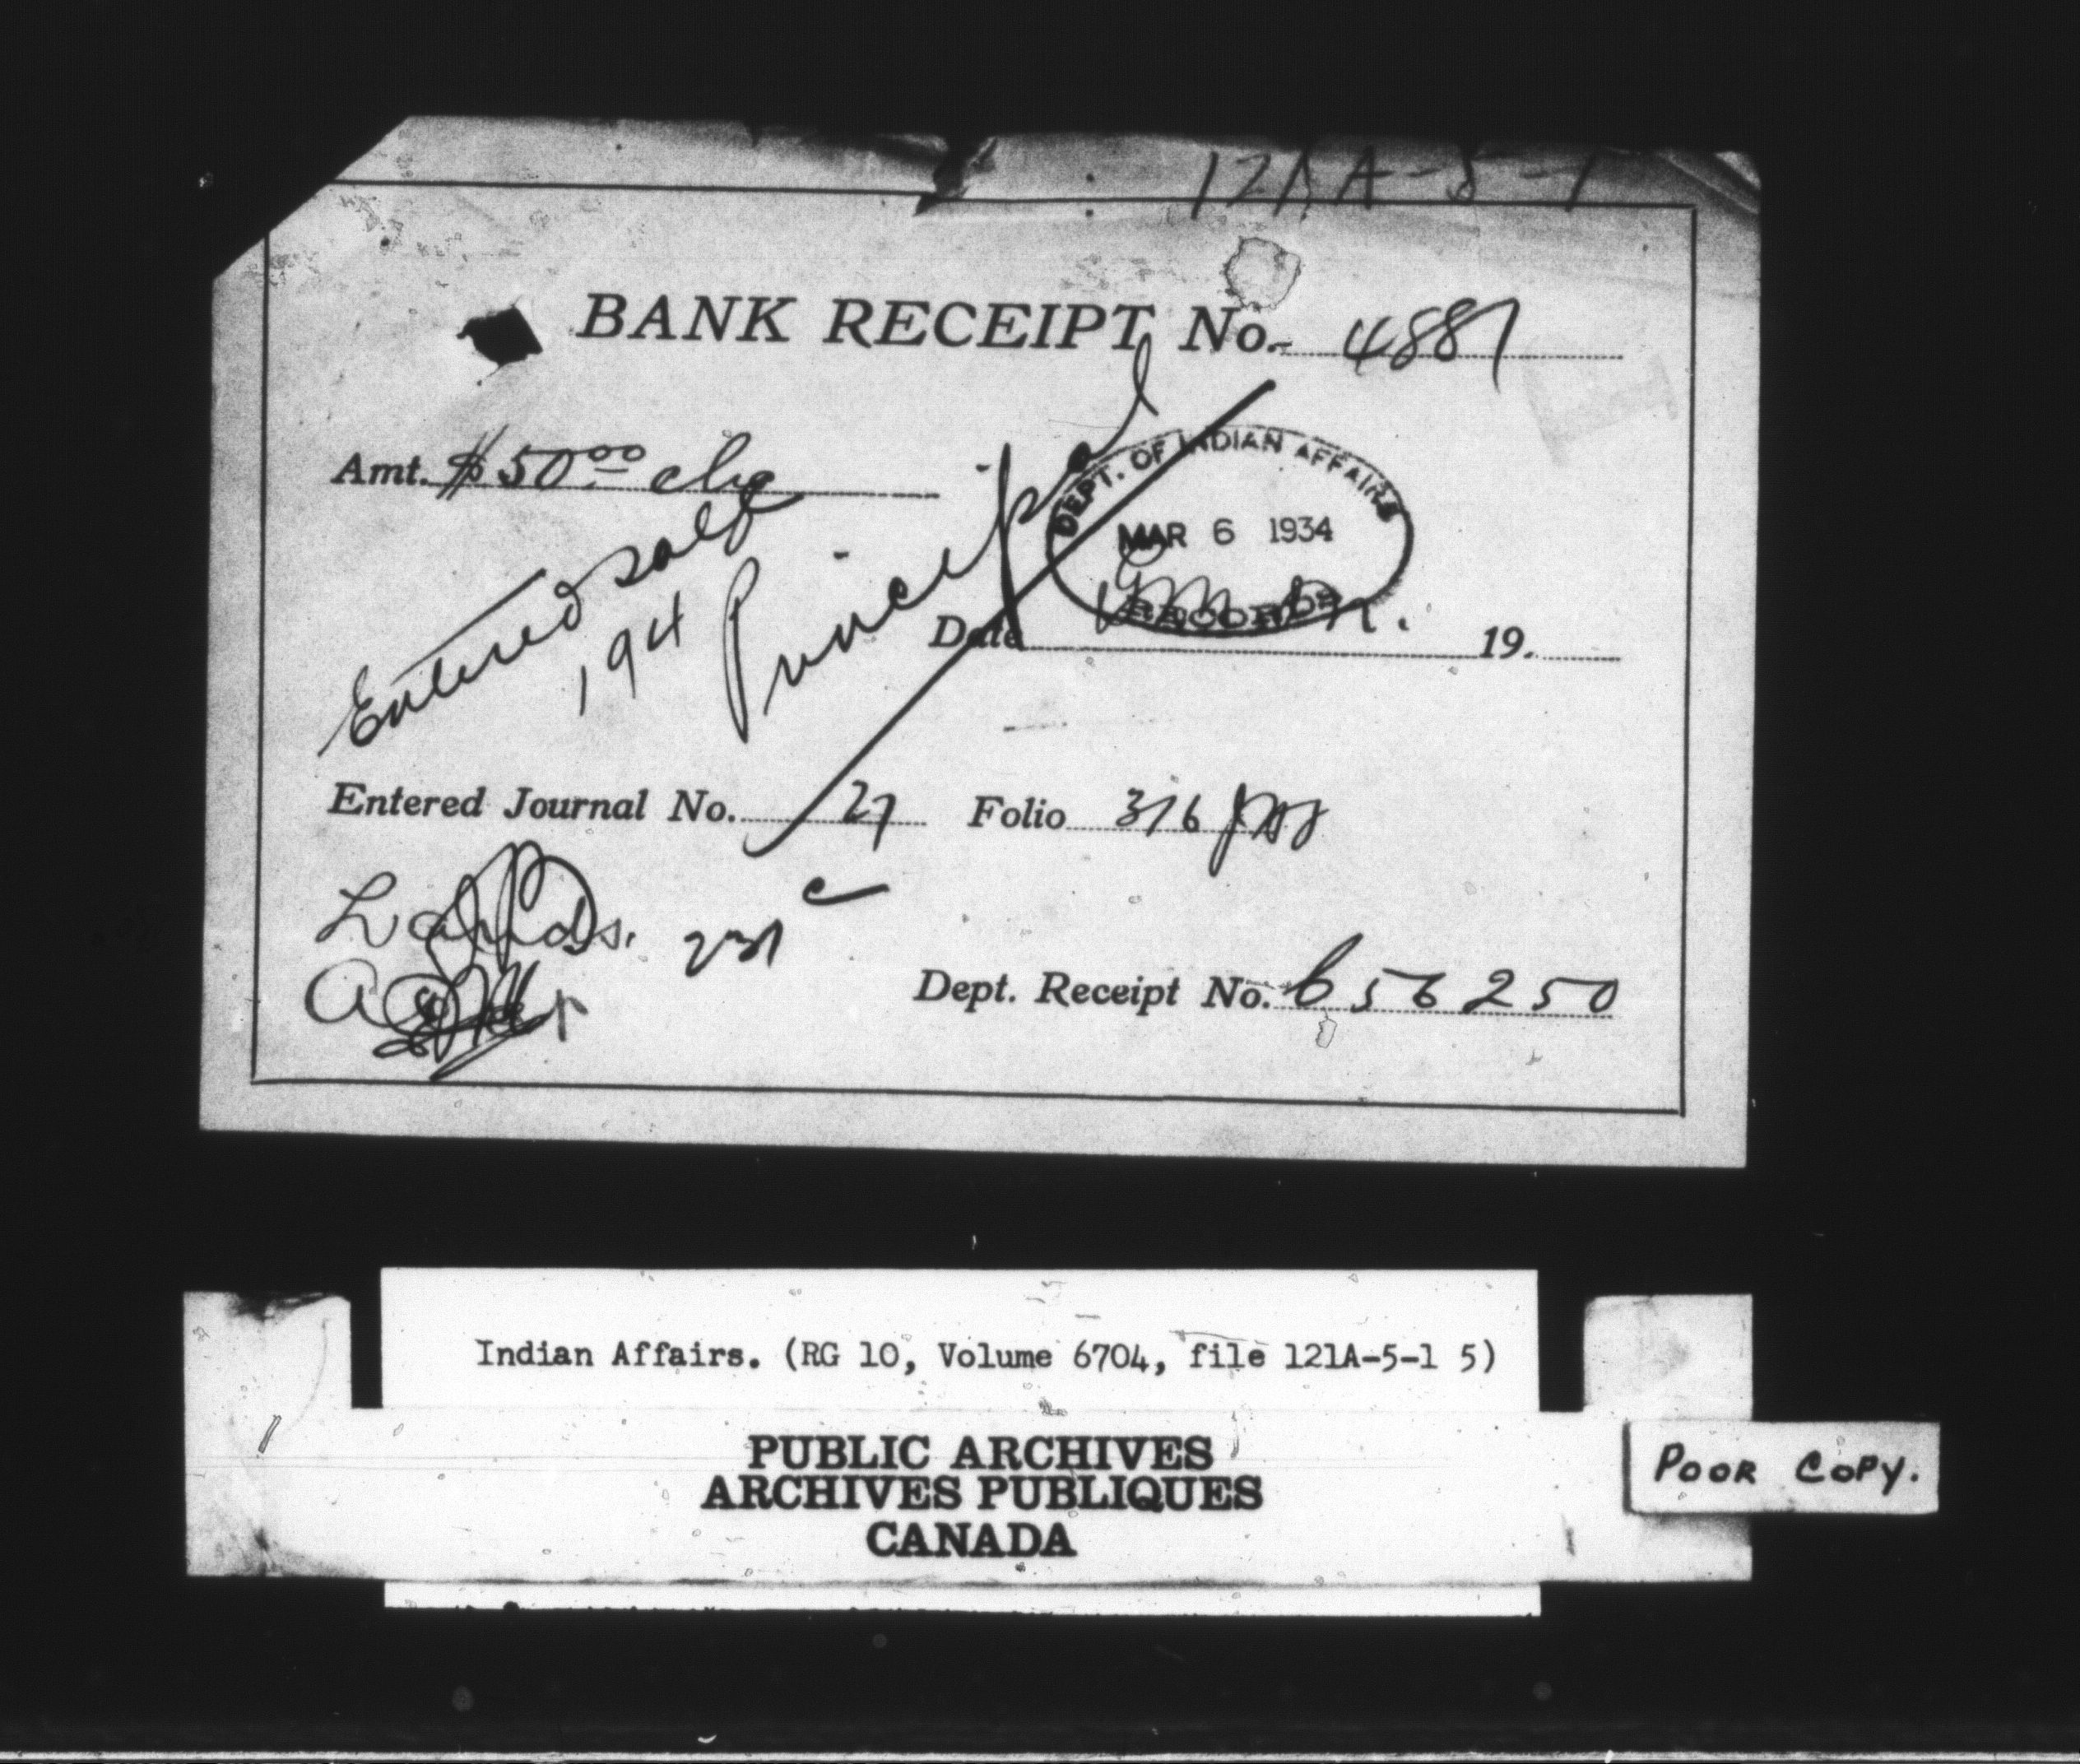 121A-5-1
BANK RECEIPT No. 4887
Amt. $50.00 chq
DEPT. OF INDIAN AFFAIRS
MAR 6 1934
RECORDS
Entered
194 Principal
Date 19.
Entered Journal No. 27 Folio 316
231
Dept. Receipt No. 656250
Indian Affairs. (RG 10, Volume 6704, file 121A-5-1 5)
PUBLIC ARCHIVES
ARCHIVES PUBLIQUES
CANADA
POOR COPY.